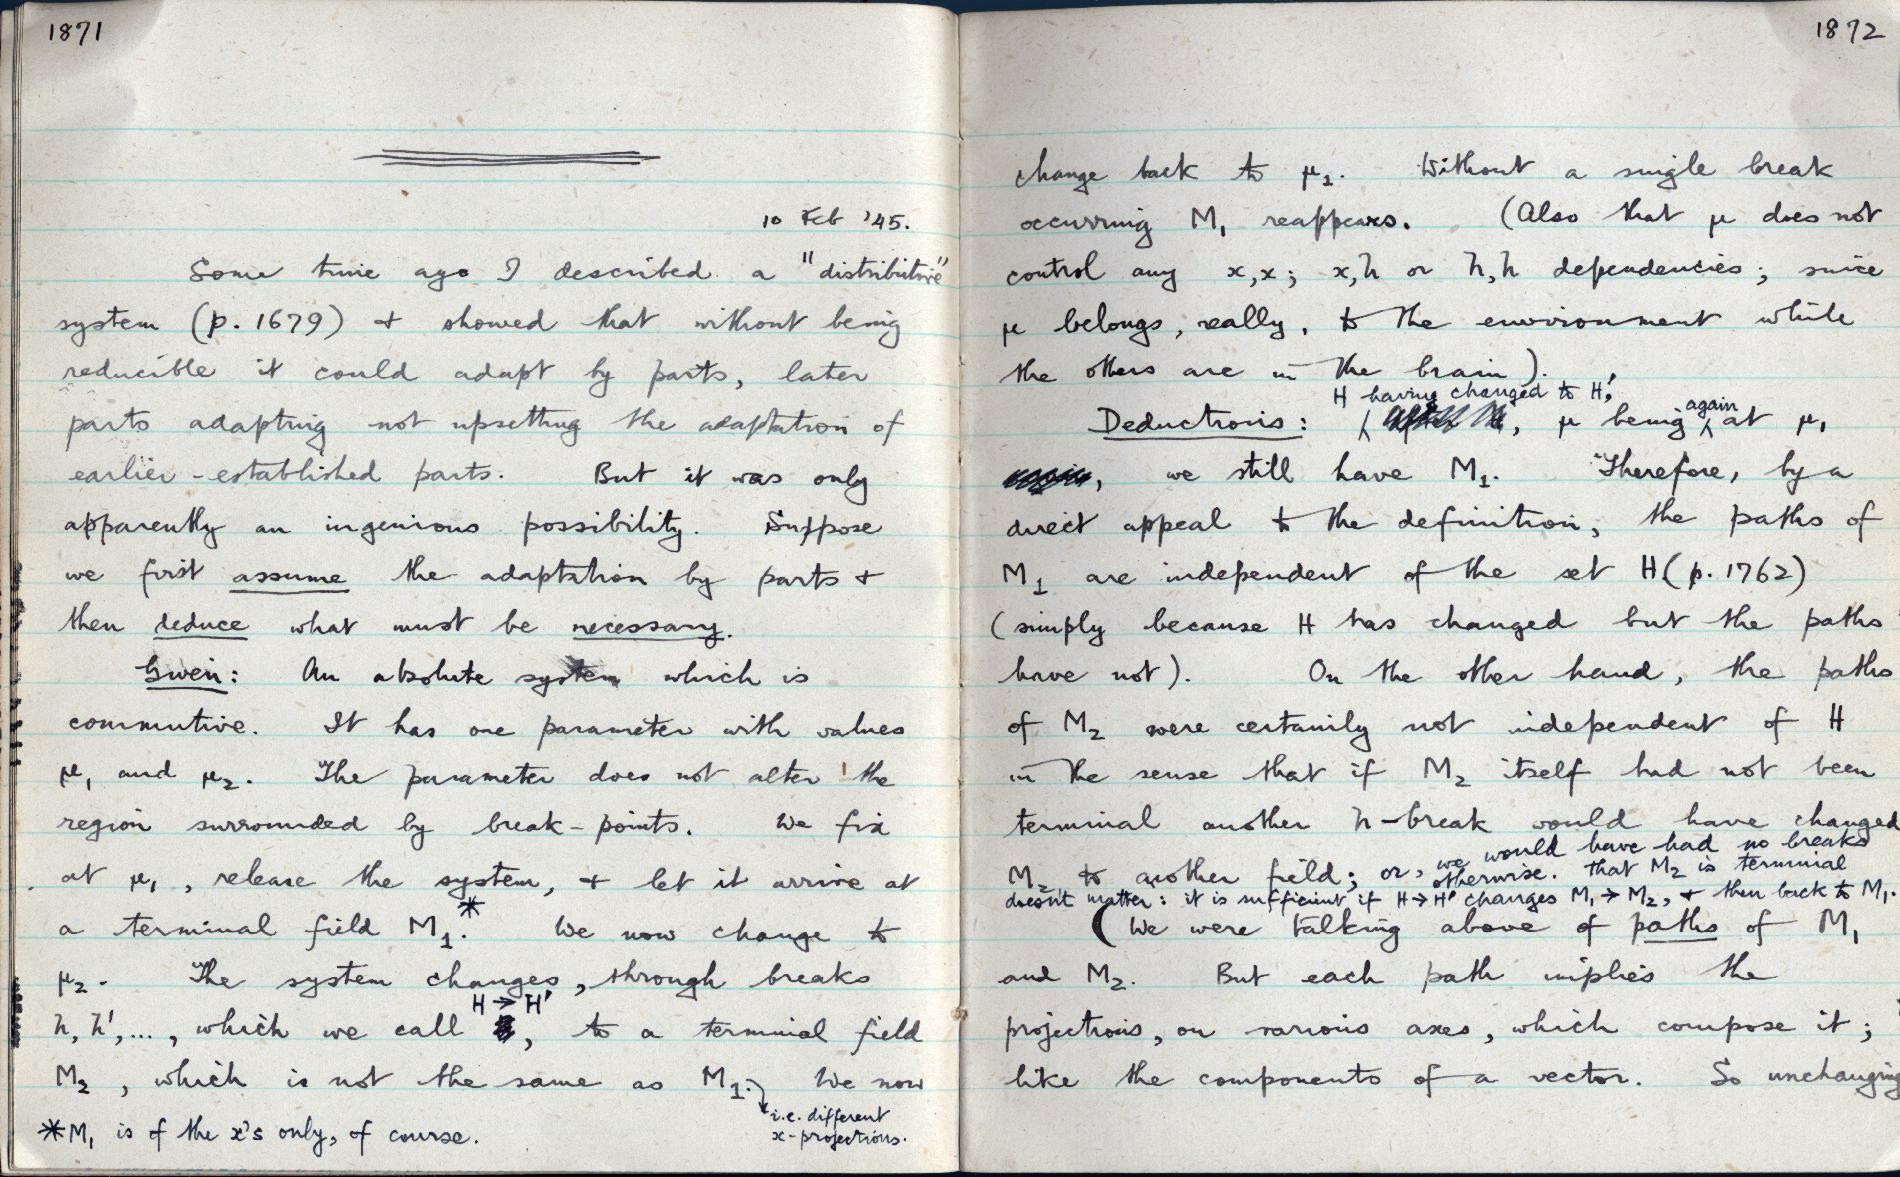 1871
10 Feb '45.
Some time ago I described a "distributive"
system (p. 1679) & showed that without being
reducible it could adapt by parts, later
parts adapting not upsetting the adaptation of
earlier-established parts. But it was only
apparently an ingenious possibility. Suppose
we first assume the adaptation by parts &
then deduce what must be necessary.
Given: An absolute system which is
commutive. It has one parameter with values
μ₁ and μ₂. The parameter does not alter the
region surrounded by break-points. We fix
at μ₁, release the system, & let it arrive at
a terminal field M₁.* We now change to
μ₂. The system changes, through breaks
H → H'
h, h', ..., which we call , to a terminal field
M₂, which is not the same as M₁. We now
i.e. different
x-projections.
*M₁ is of the x's only, of course.
1872
change back to μ₁. Without a single break
occurring M₁ reappears. (Also that μ does not
control any x,x; x,h or h,h dependencies; since
μ belongs, really, to the environment while
the others are in the brain).
H having changed to H',
Deductions: , μ being again at μ₁
, we still have M₁. Therefore, by a
direct appeal to the definition, the paths of
M₁ are independent of the set H (p. 1762)
(simply because H has changed but the paths
have not). On the other hand, the paths
of M₂ were certainly not independent of H
in the sense that if M₂ itself had not been
terminal another h-break would have changed
M₂ to another field; or, we would have had no breaks
otherwise. that M₂ is terminal
doesn't matter: it is sufficient if H→H' changes M₁→M₂, & then back to M₁.
(We were talking above of paths of M₁
and M₂. But each path implies the
projections, on various axes, which compose it;
like the components of a vector. So unchanging